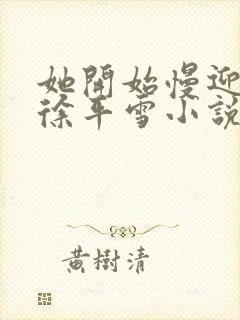 她開始慢迎
徐平雪小說
黃樹清